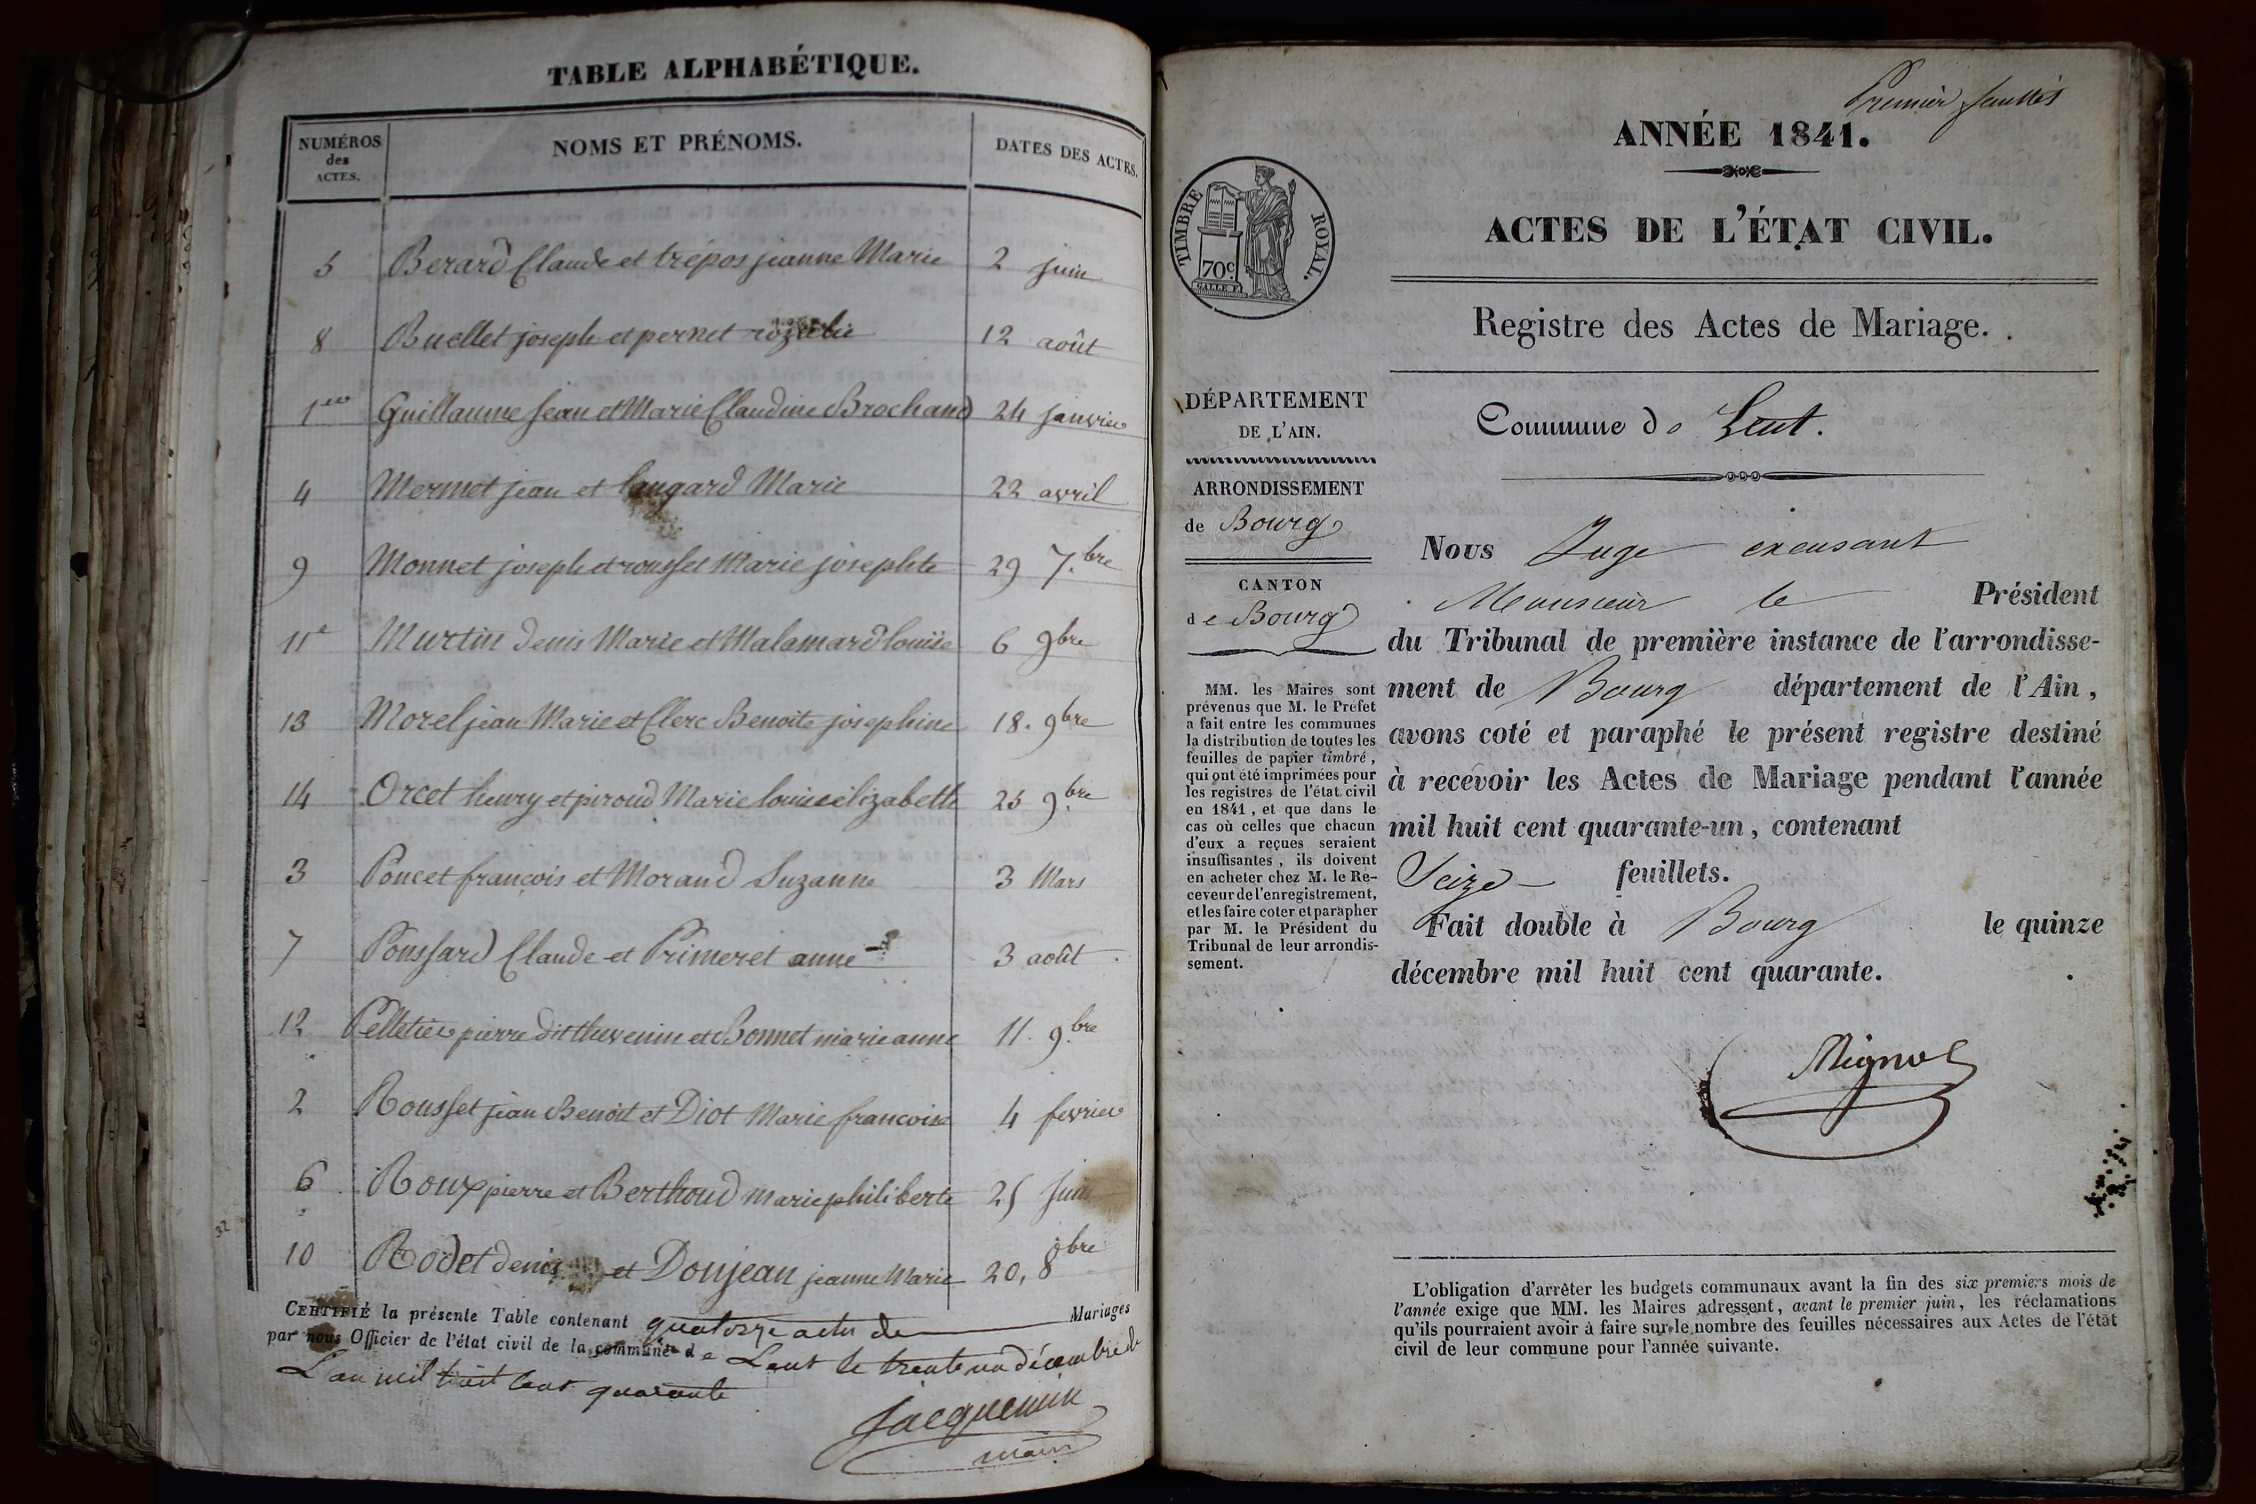 TABLE ALPHABÉTIQUE.
NUMÉROS des ACTES.
NOMS ET PRÉNOMS.
DATES DES ACTES.
5 Berard Claude et trépos jeanne Marie 2 juin
8 Buellet joseph et pernet rozalie 12 août
1er Guillaume Jean et Marie Claudine Brochand 24 janvier
4 Mermet jean et Laugard Marie 22 avril
9 Monnet joseph et rousset Marie josephte 29 7.bre
11e Murtin denis Marie et Malamard louise 6 9bre
13 Morel jean Marie et Clerc Benoite josephine 18. 9bre
14 Orcet henry et piroud Marie louise élizabette 25 9.bre
3 Poncet françois et Morand Suzanne 3 Mars
7 Poussard Claude et Primeret anne 3 août
12 Pelletier pierre dit thevenin et Bonnet marie anne 11. 9.bre
2 Rousset jean Benoit et Diot Marie francoise 4 fevrier
6 Roux pierre et Berthoud marie philiberte 25 Juin
10 Rodet denis et Donjean jeanne Marie 20, 8bre
32
CERTIFIÉ la présente Table contenant quatorze actes de Mariages
par nous Officier de l'état civil de la commune de Lent le trente un décembre de
L'an mil huit cent quarante
Jacquemin
maire
Premier feuillet
ANNÉE 1841.
TIMBRE ROYAL.
70c.
ACTES DE L'ÉTAT CIVIL.
Registre des Actes de Mariage.
Commune de Lent.
DÉPARTEMENT
DE L'AIN.
ARRONDISSEMENT
de Bourg
CANTON
de Bourg
MM. les Maires sont
prévenus que M. le Préfet
a fait entre les communes
la distribution de toutes les
feuilles de papier timbré,
qui ont été imprimées pour
les registres de l'état civil
en 1841, et que dans le
cas où celles que chacun
d'eux a reçues seraient
insuffisantes, ils doivent
en acheter chez M. le Re-
ceveur de l'enregistrement,
et les faire coter et parapher
par M. le Président du
Tribunal de leur arrondis-
sement.
Nous Juge excusant
Monsieur le Président
du Tribunal de première instance de l'arrondisse-
ment de Bourg département de l'Ain,
avons coté et paraphé le présent registre destiné
à recevoir les Actes de Mariage pendant l'année
mil huit cent quarante-un, contenant
Seize feuillets.
Fait double à Bourg le quinze
décembre mil huit cent quarante.
L'obligation d'arrêter les budgets communaux avant la fin des six premiers mois de
l'année exige que MM. les Maires adressent, avant le premier juin, les réclamations
qu'ils pourraient avoir à faire sur le nombre des feuilles nécessaires aux Actes de l'état
civil de leur commune pour l'année suivante.